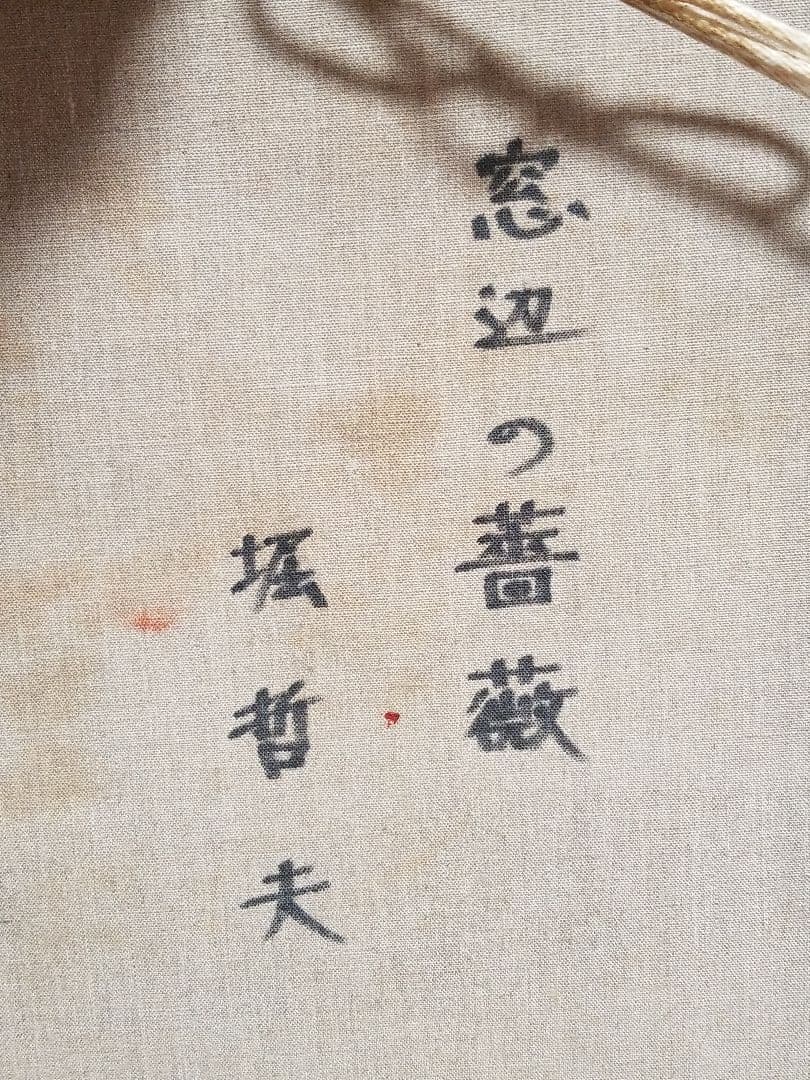 窓辺の薔薇
堀哲夫